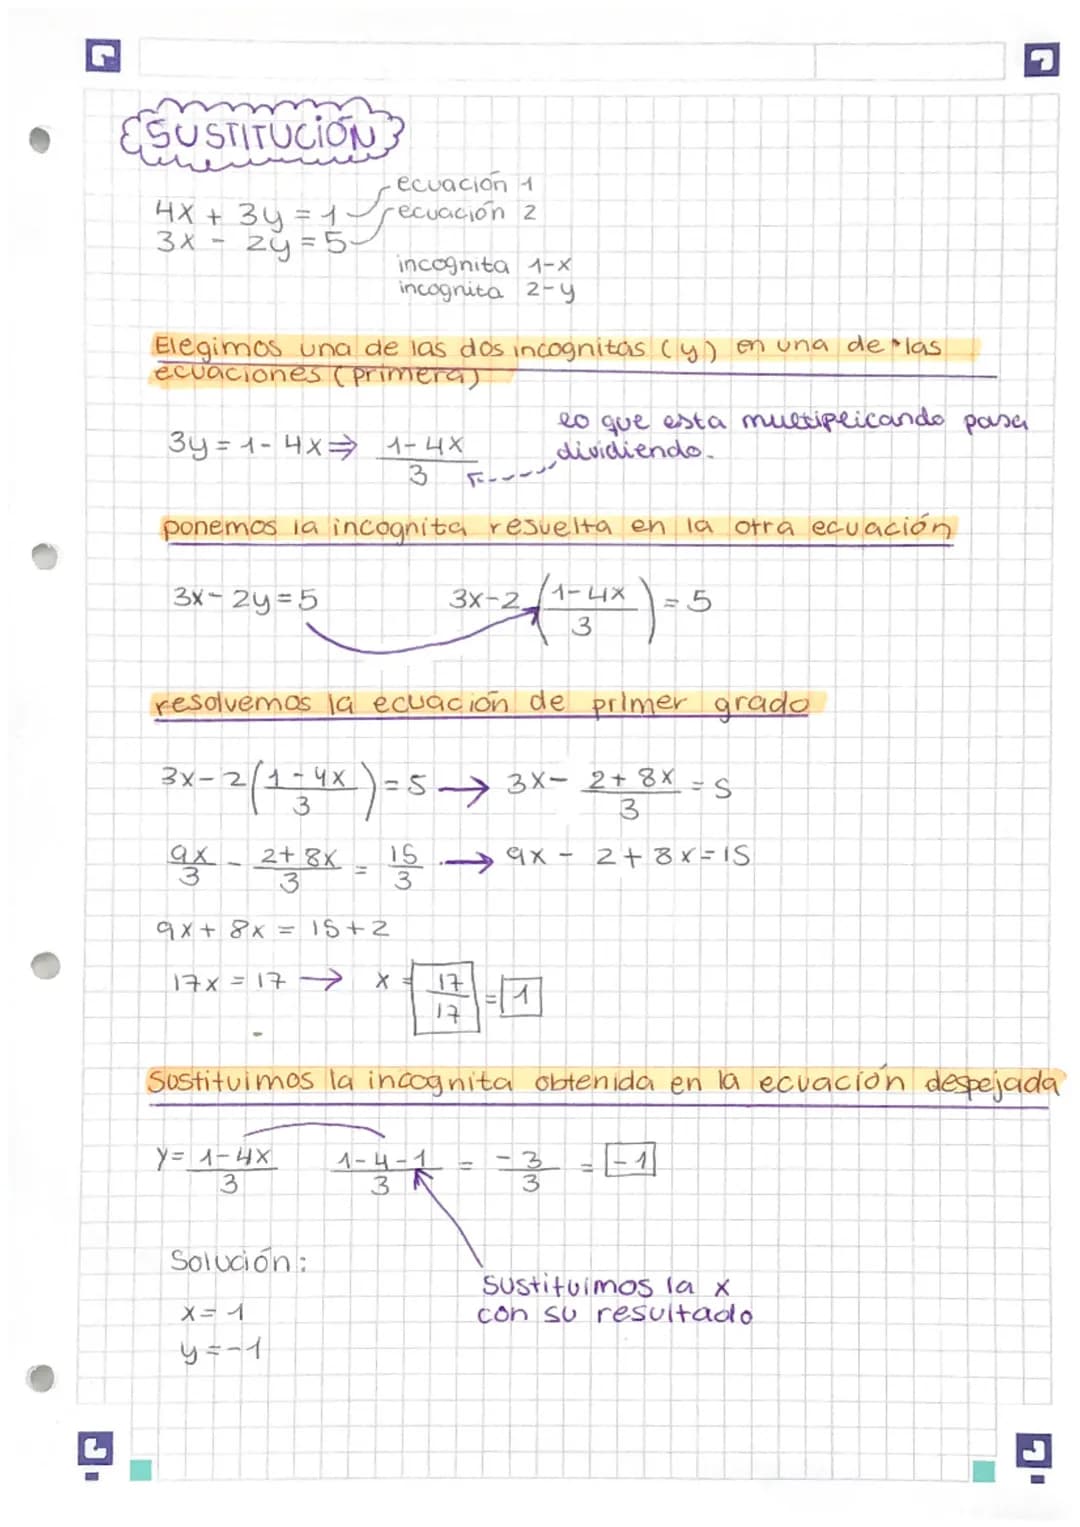 SUSTITUCIÓN
4x + 3y = 1 ecuación 1
3x - 2y = 5 ecuación 2
incognita 1-x
incognita 2-y
Elegimos una de las dos incognitas (y) en una de las
ecuaciones (primera)
3y = 1 - 4x ⇒ 1-4x/3
lo que esta multiplicando pasa
dividiendo.
ponemos la incognita resuelta en la otra ecuación
3x - 2y = 5 3x-2(1-4x/3) = 5
resolvemos la ecuación de primer grado
3x-2(1-4x/3) = 5 → 3x- 2+8x/3 = 5
9x/3 - 2+8x/3 = 15/3 → 9x - 2+8x=15
9x + 8x = 15+2
17x = 17 → x = 17/17 = 1
Sustituimos la incognita obtenida en la ecuación despejada
y = 1-4x/3 1-4-1/3 = -3/3 = -1
Solución:
Sustituimos la x
con su resultado
x = 1
y = -1